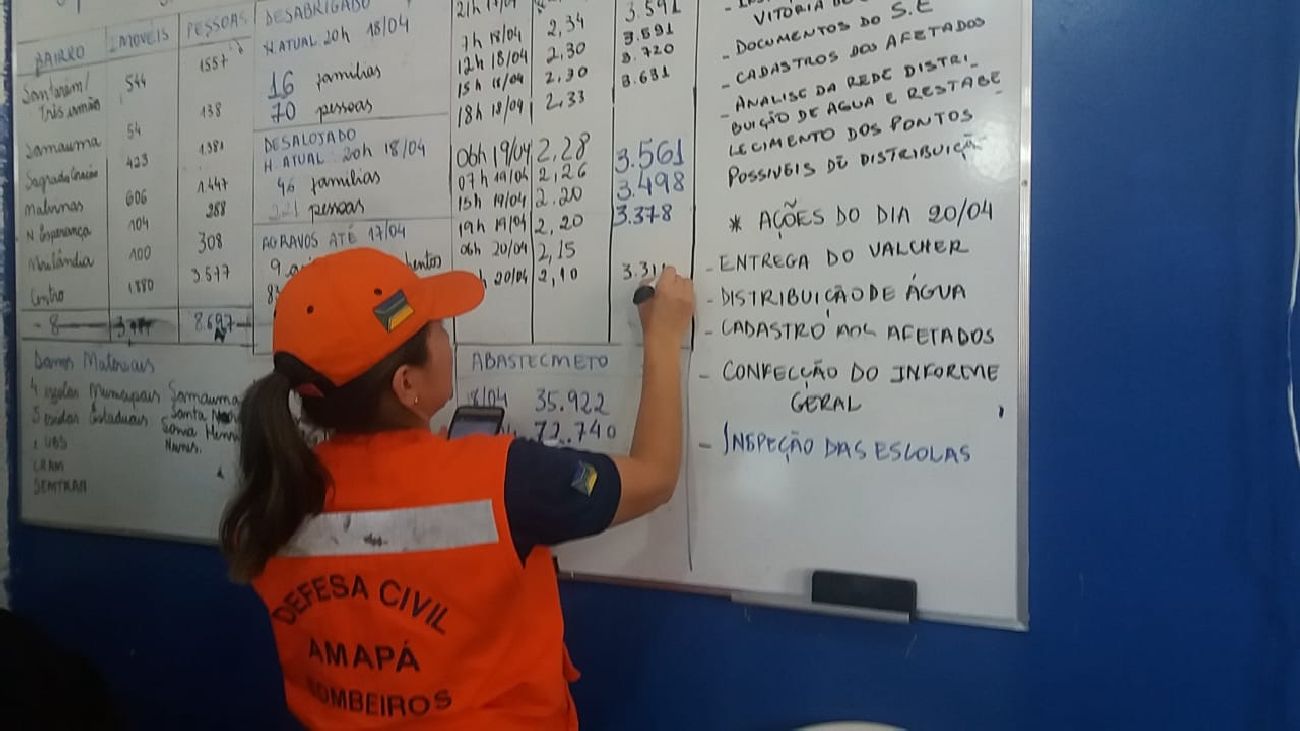 BAIRRO IMÓVEIS PESSOAS
Santarém/
Três irmãos 544 1557
Samauma 54 138
Sagrado Coração 423 1381
Malvinas 606 1.447
N. Esperança 104 288
100 308
Centro 1880 3.577
- 8 8.697
DESABRIGADO
N. ATUAL 20h 18/04
16 famílias
70 pessoas
DESALOJADO
N. ATUAL 20h 18/04
46 famílias
221 pessoas
AGRAVOS ATÉ 17/04
9
21h 3.591
7h 18/04 2,34 3.591
12h 18/04 2,30 3.720
15h 18/04 2,30 3.631
18h 18/04 2,33
06h 19/04 2,28 3.561
07h 19/04 2,26 3.498
15h 19/04 2.20 3.378
19h 19/04 2,20
06h 20/04 2,15
h 20/04 2,10 3.31
ABASTECMETO
18/04 35.922
72.740
Danos Materiais
4 escolas Municipais Samauma
5 escolas Estaduais Santa
2 UBS Nunes.
CRAM
SEMTRAM
VITORIA DO
- DOCUMENTOS DO S.E
- CADASTROS DOS AFETADOS
- ANALISE DA REDE DISTRI-
BUIÇÃO DE AGUA E RESTABE-
LECIMENTO DOS PONTOS
POSSIVEIS DE DISTRIBUIÇÃO
* AÇÕES DO DIA 20/04
- ENTREGA DO VALCHER
- DISTRIBUIÇÃO DE ÁGUA
- CADASTRO AOS AFETADOS
- CONFECÇÃO DO INFORME
GERAL
- INSPEÇÃO DAS ESCOLAS
DEFESA CIVIL
AMAPÁ
BOMBEIROS